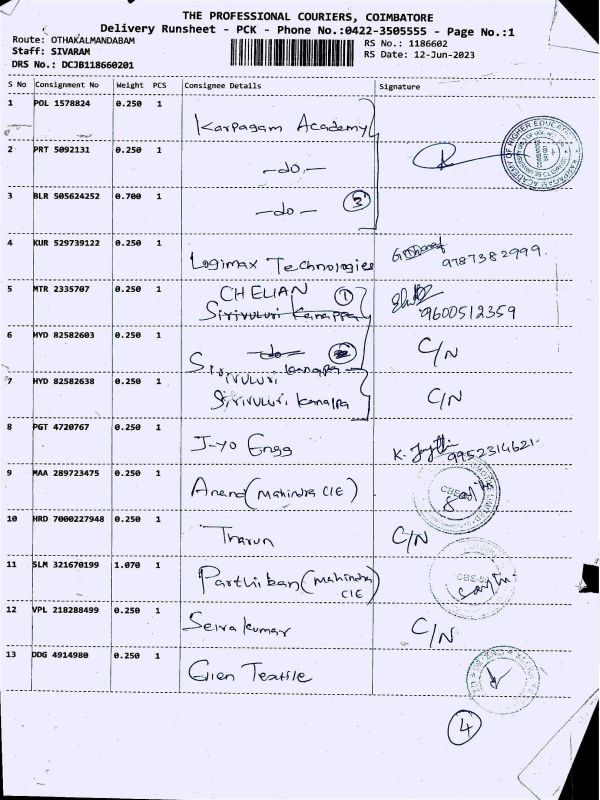 THE PROFESSIONAL COURIERS, COIMBATORE
Delivery Runsheet - PCK - Phone No.:0422-3505555 - Page No.:1
Route: OTHAKALMANDABAM
RS No.: 1186602
Staff: SIVARAM
RS Date: 12-Jun-2023
DRS No.: DCJB118660201
S No Consignment No Weight PCS Consignee Details Signature
1 POL 1578824 0.250 1 Karpagam Academy
2 PRT 5092131 0.250 1 -do-
3 BLR 505624252 0.700 1 -do- 3
4 KUR 529739122 0.250 1 Logimax Technologies 9787382999
5 MTR 2335707 0.250 1 CHELIAN 1 9600512359
6 HYD 82582603 0.250 1 C/N
7 HYD 82582638 0.250 1 C/N
8 PGT 4720767 0.250 1 J-yo Engg 9952314621
9 MAA 289723475 0.250 1 Anand (Mahindra CIE)
10 HRD 7000227948 0.250 1 Tharun C/N
11 SLM 321670199 1.070 1 Parthiban (Mahindra CIE)
12 VPL 218288499 0.250 1 C/N
13 DDG 4914980 0.250 1 Textile
4